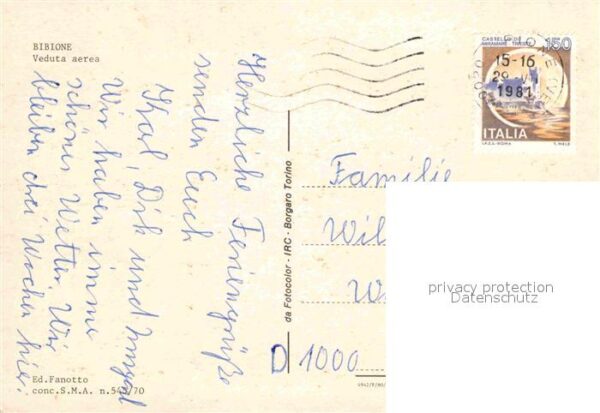 BIBIONE
Veduta aerea
Herzliche Feriengrüße
senden Euch
Dirk und
Wir haben imme
schönes Wetter. Wir
bleiben drei Wochen hier.
Ed.Fanotto
conc.S.M.A.
da Fotocolor - IRC - Borgaro Torino
CASTELLO DI
MIRAMARE - TRIESTE
150
15-16
1981
ITALIA
I.P.Z.S.-ROMA
Familie
Wil
W
D 1000
privacy protection
Datenschutz